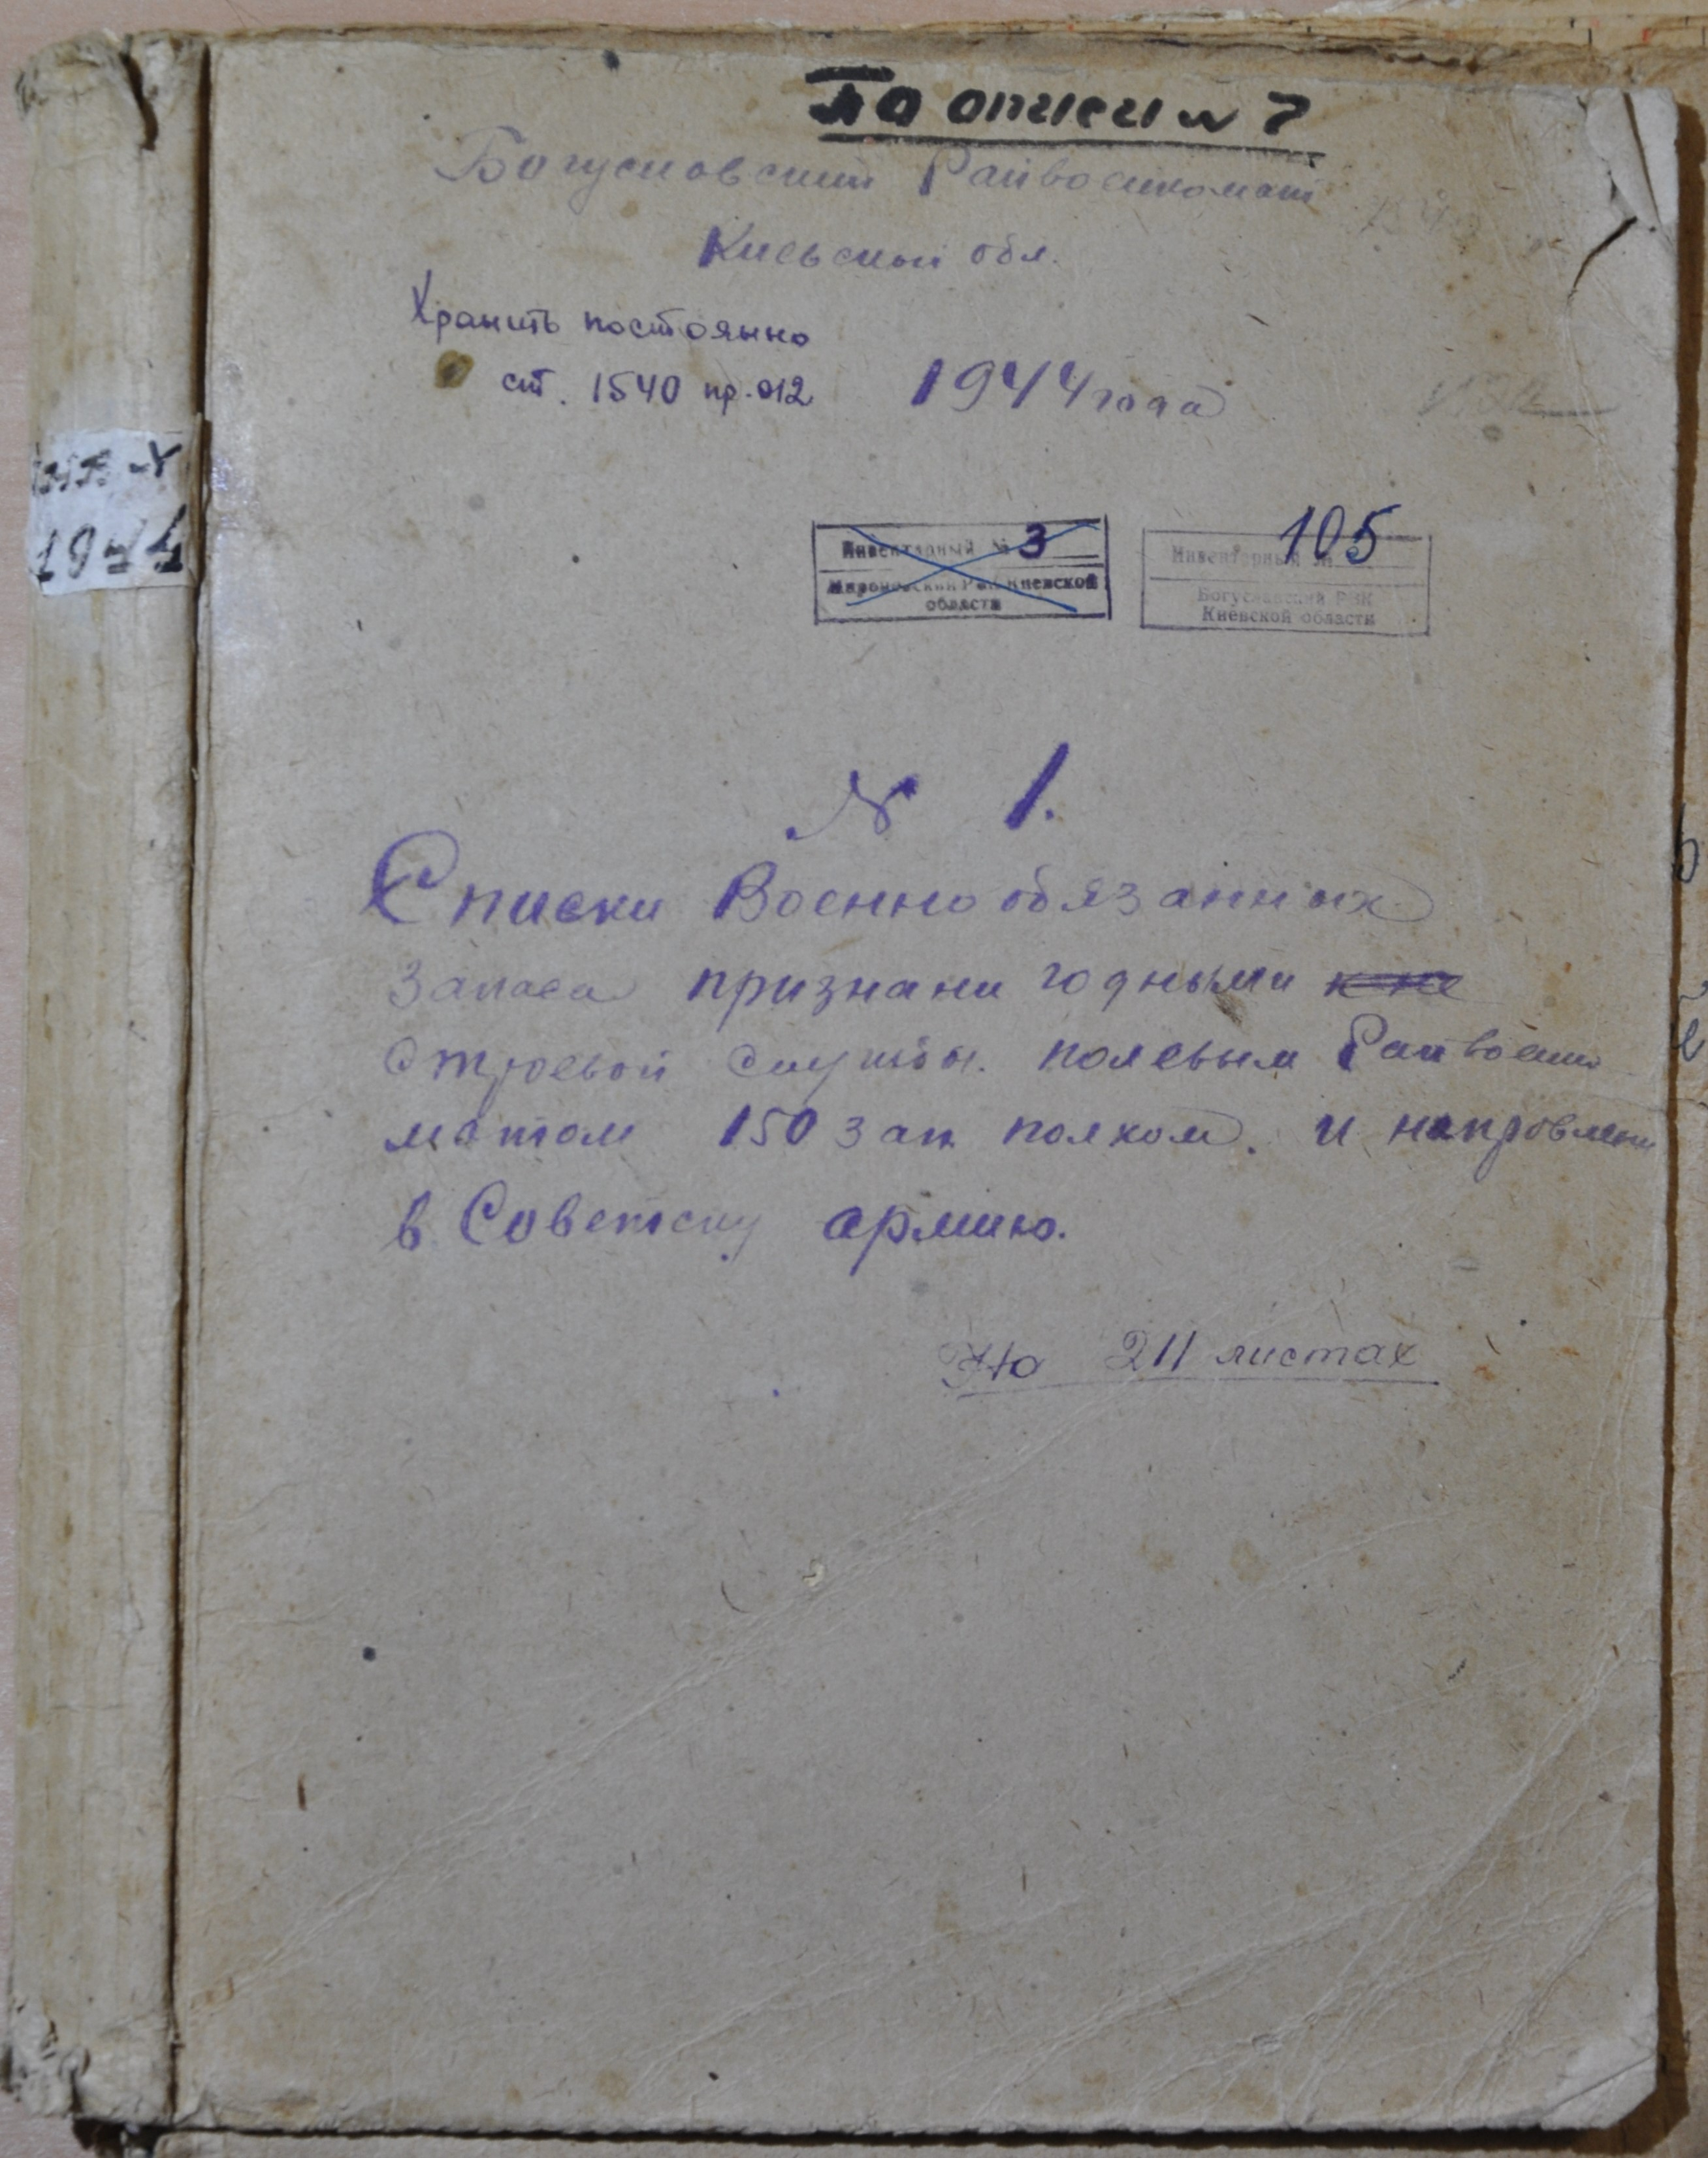 По описи № 7
Богуславский Райвоенкомат
Киевской обл.
Хранить постоянно
ст. 1540 пр. 012
1944 года
1944
Инвентарный № 3
Мироновский РВК Киевской
области
105
Инвентарный №
Богуславский РВК
Киевской области
№ 1.
Списки Военнообязанных
запаса признани годными к не
строевой службы. полевым Райвоенко
матом 150 зап полком. и направлены
в Советску армию.
На 211 листах